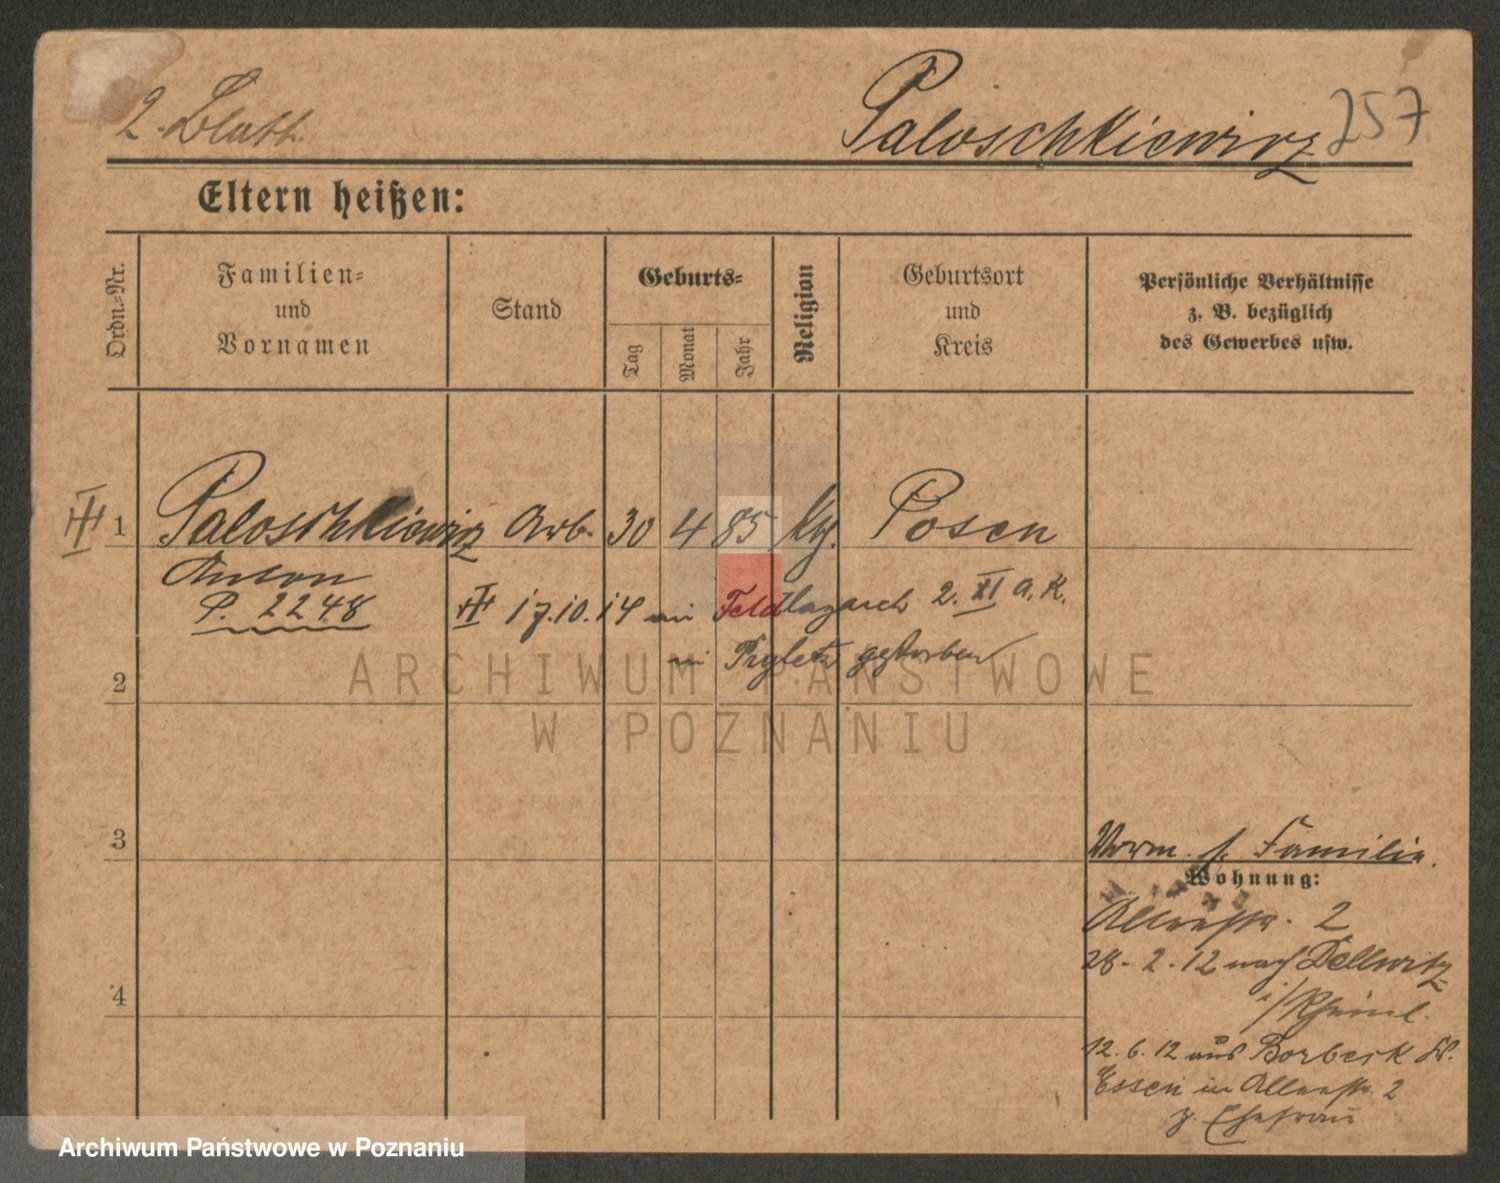 2. Blatt
Paloschkiewicz 257
Eltern heißen:
Ordn.=Nr.
Familien=
und
Vornamen
Stand
Geburts=
Tag
Monat
Jahr
Religion
Geburtsort
und
Kreis
Persönliche Verhältnisse
z. B. bezüglich
des Gewerbes usw.
1 Paloschkiewicz Arb. 30 4 85 Posen
Anton
P. 2248
17.10.14 im Feldlazarett 2. XI A. K.
in gestorben
2
3
4
Verm. s. Familie.
Wohnung:
2
28. 2. 12 nach Dellwitz
i/Rheinl.
12. 6. 12 aus Borbeck Kr.
Essen in 2
z. Ehefrau
ARCHIWUM PAŃSTWOWE
W POZNANIU
Archiwum Państwowe w Poznaniu